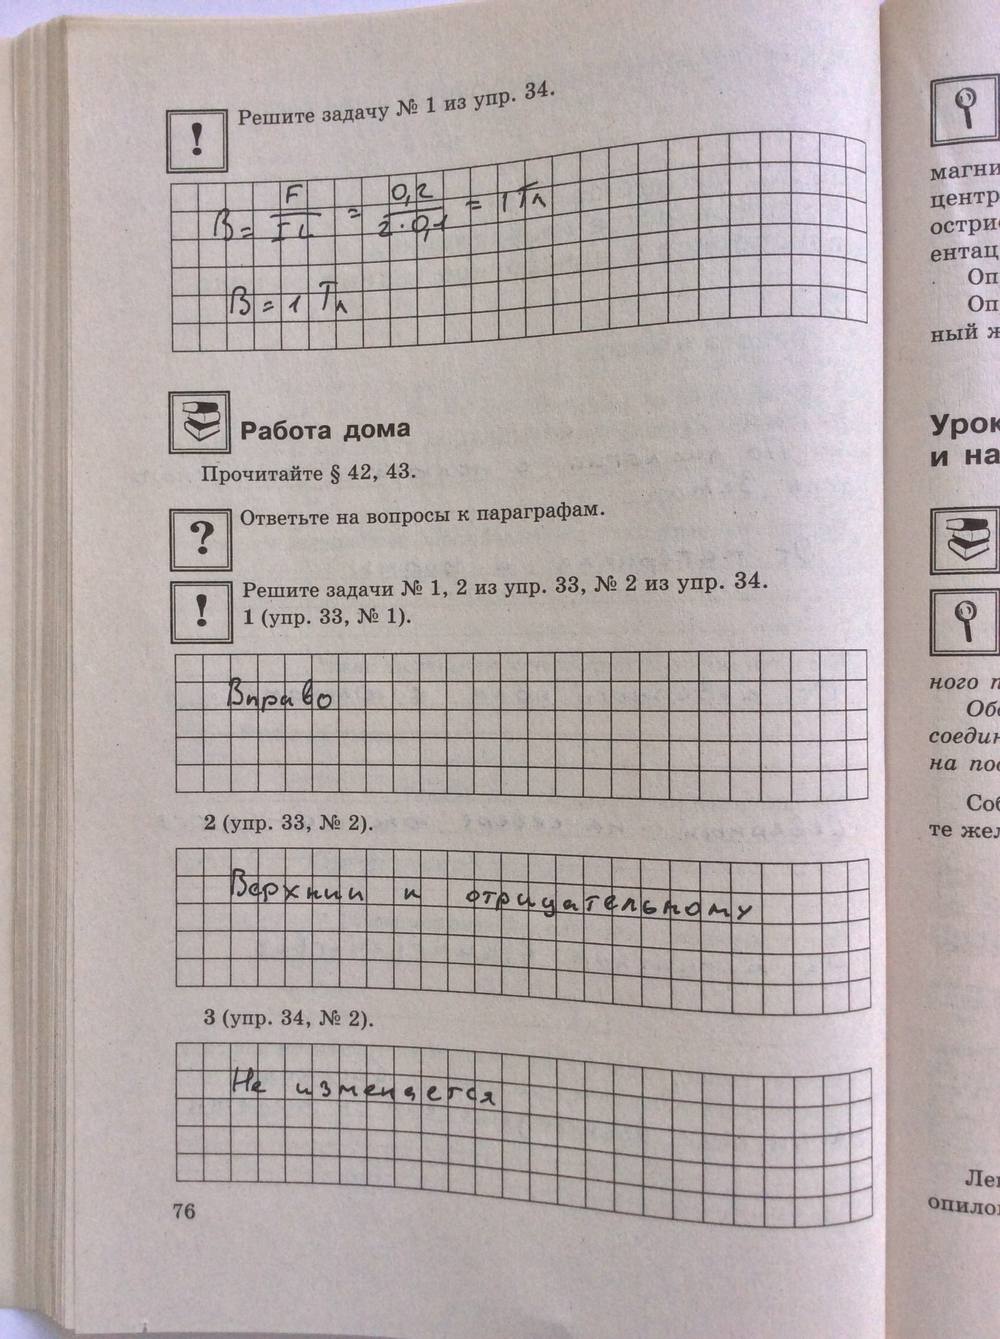 Решите задачу № 1 из упр. 34.
!
B = F / IL = 0,2 / 2·0,1 = 1 Тл
B = 1 Тл
Работа дома
Прочитайте § 42, 43.
?
Ответьте на вопросы к параграфам.
!
Решите задачи № 1, 2 из упр. 33, № 2 из упр. 34.
1 (упр. 33, № 1).
Вправо
2 (упр. 33, № 2).
Верхний к отрицательному
3 (упр. 34, № 2).
Не изменяется
76
магни
центр
остри
ентац
Оп
Оп
ный ж
Урок
и на
ного п
Обо
соедин
на пос
Соб
те жел
Лег
опило